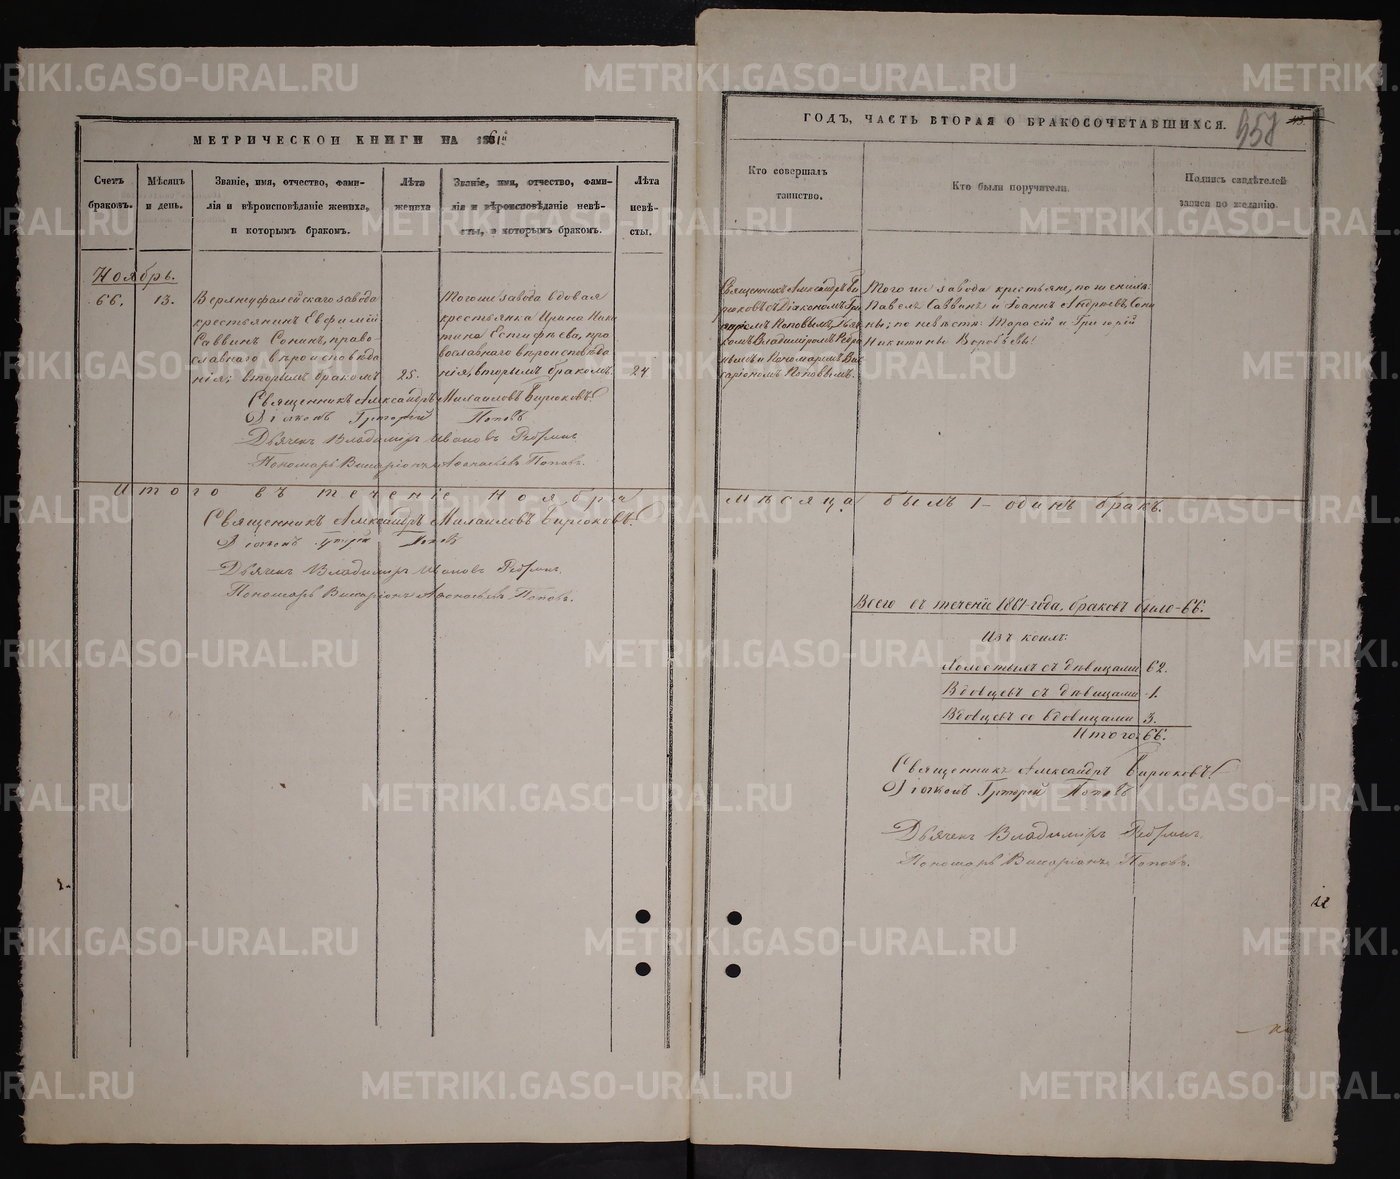 МЕТРИЧЕСКОЙ КНИГИ НА 1861й
Счетъ браковъ.
Мѣсяцъ и день.
Званіе, имя, отчество, фами-
лія и вѣроисповѣданіе жениха,
и которымъ бракомъ.
Лѣта жениха
Званіе, имя, отчество, фами-
лія и вѣроисповѣданіе невѣ-
сты, и которымъ бракомъ.
Лѣта невѣ-
сты.
Ноябрь.
66. 13.
Верхнеуфалейскаго завода
крестьянинъ Евфимій
Саввинъ Сонинъ, право-
славнаго вѣроисповѣда-
нія; вторымъ бракомъ
25.
Тогоже завода вдовая
крестьянка Ирина Ники
тина Естифѣева, пра
вославнаго вѣроисповѣда
нія, вторымъ бракомъ.
24
Священникъ Александръ Михаиловъ Бирюковъ.
Діаконъ Григорій Поповъ
Дьячек Владиміръ Ивановъ Ребрин
Пономарь Висаріонъ Афанасьевъ Поповъ.
Итого въ теченіе Ноября
Священникъ Александръ Михаиловъ Бирюковъ.
Діаконъ Григорій Поповъ
Дьячек Владиміръ Ивановъ Ребрин.
Пономарь Висаріонъ Афанасьевъ Поповъ.
ГОДЪ, ЧАСТЬ ВТОРАЯ О БРАКОСОЧЕТАВШИХСЯ.
958
Кто совершалъ
таинство.
Кто были поручители.
Подпись свидѣтелей
записи по желанію.
Священникъ Александръ Би
рюковъ съ Діакономъ Гри
горіемъ Поповымъ, Дьяч
комъ Владиміромъ Ребри
нымъ и Пономаремъ Вис
саріономъ Поповымъ.
Того же завода крестьяне, по женихѣ:
Павелъ Саввинъ и Іоаннъ Андреевъ Сони
ны; по невѣстѣ: Тарасій и Григорій
Никитины Воробьевы.
мѣсяца былъ 1 - одинъ бракъ.
Всего въ теченіе 1861 года, браковъ было - 66.
Изъ коихъ:
Холостыхъ съ дѣвицами 62.
Вдовцевъ съ дѣвицами 1.
Вдовцевъ со вдовицами 3.
Итого. 66.
Священникъ Александръ Бирюковъ.
Діаконъ Григорій Поповъ
Дьячек Владиміръ Ребрин.
Пономарь Висаріонъ Поповъ.
METRIKI.GASO-URAL.RU